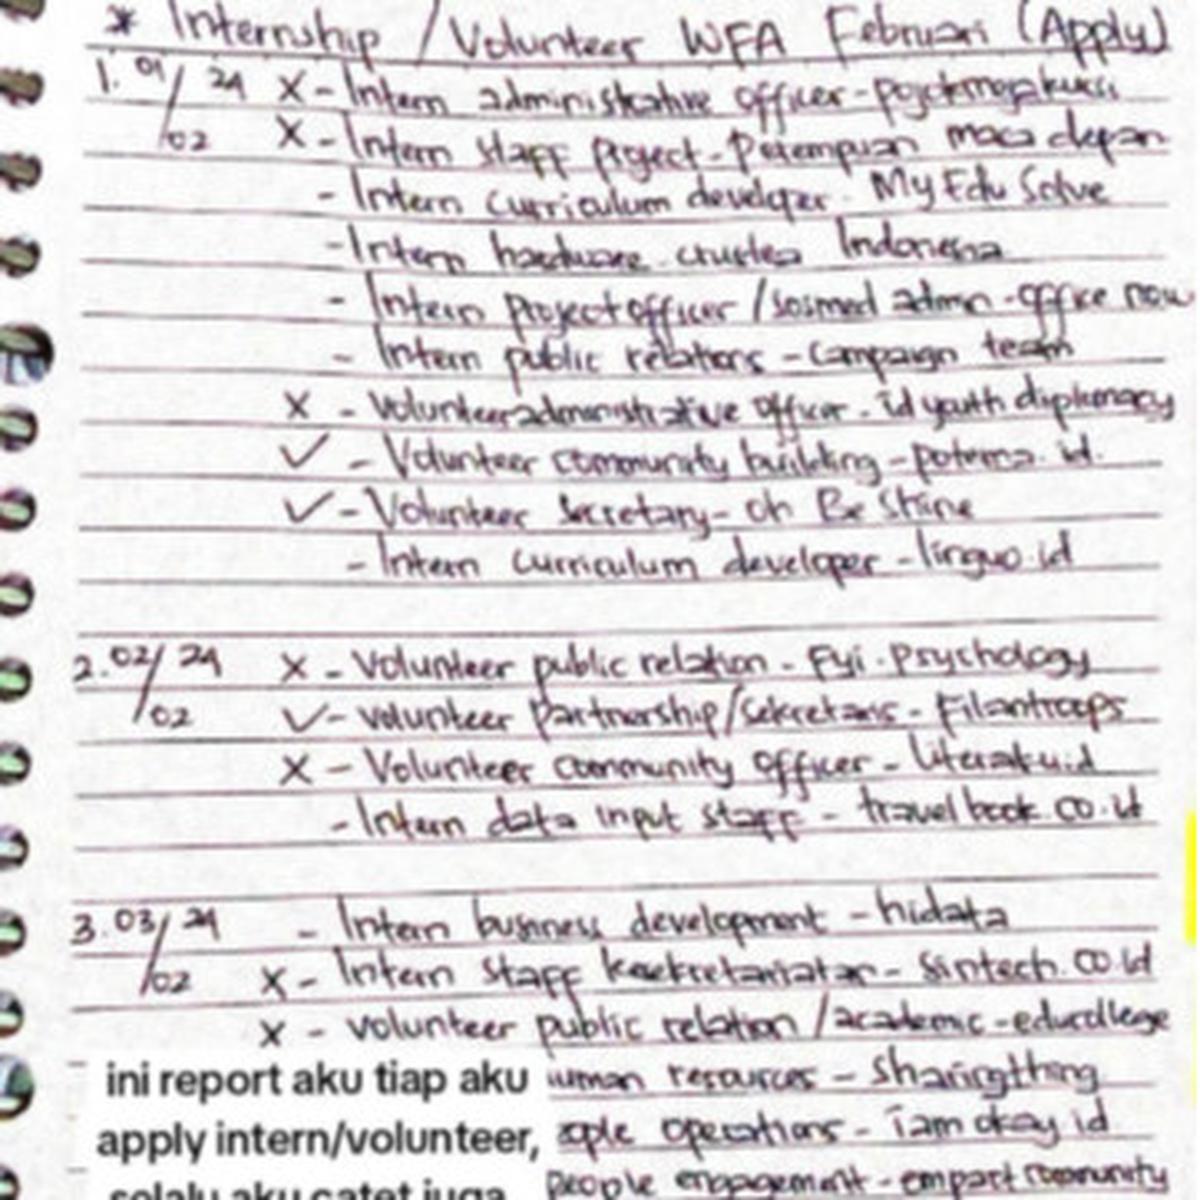 * Internship / Volunteer WFA Februari (Apply)
1. 01/02 24 X - Intern administrative officer - pojokmajakussi
X - Intern staff project - Perempuan masa depan
- Intern curriculum developer - My Edu Solve
- Intern hardware - Indonesia
- Intern project officer / sosmed admin - office now
- Intern public relations - campaign team
X - Volunteer administrative officer - id youth diplomacy
✓ - Volunteer community building - potema.id
✓ - Volunteer secretary - Oh Be Shine
- Intern curriculum developer - linguo.id
2. 02/02 24 X - Volunteer public relation - Fyi.Psychology
✓ - Volunteer partnership/sekretaris - Filantroops
X - Volunteer community officer - literaku.id
- Intern data input staff - travelbook.co.id
3. 03/02 24 - Intern business development - hidata
X - Intern staff kesekretariatan - Sintech.co.id
X - volunteer public relation / academic - educollege
uman resources - Sharingthing
ople operations - iam okay id
people engagement - empart community
ini report aku tiap aku
apply intern/volunteer,
selalu aku catet juga